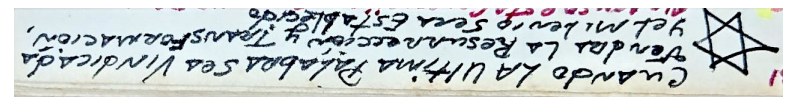 Cuando LA Ultima Palabra Sea Vindicada
Vendra La Resurrección y Transformación,
yel Milenio Sera Establecido